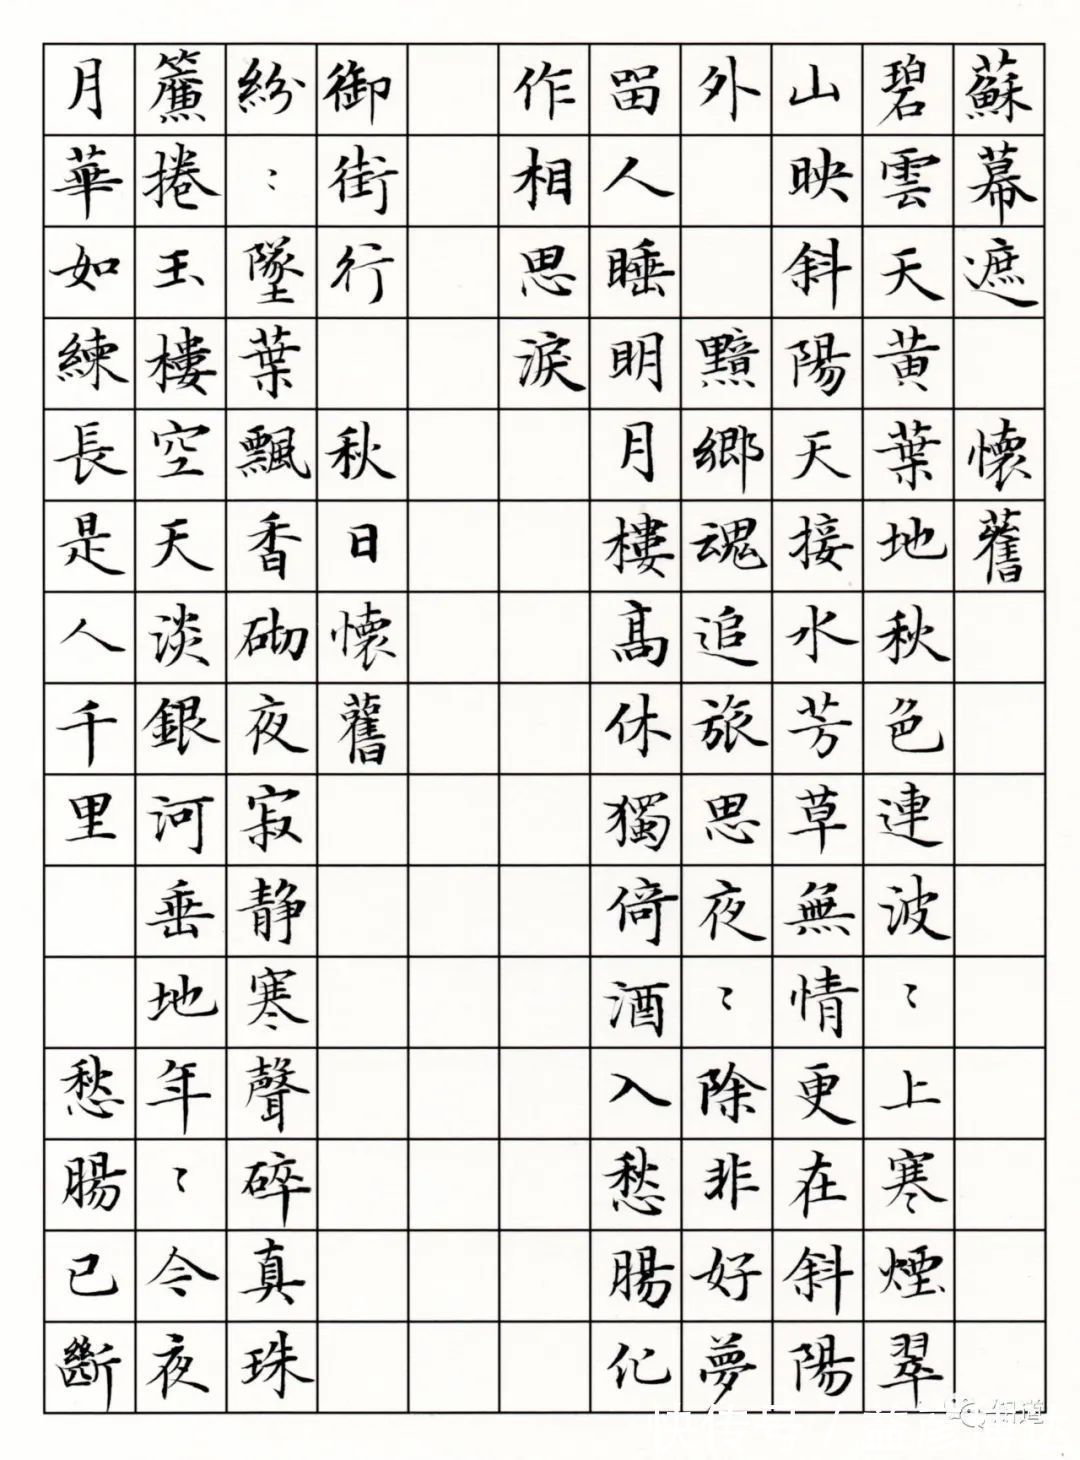 蘇幕遮 懷舊
碧雲天黃葉地秋色連波〻上寒煙翠
山映斜陽天接水芳草無情更在斜陽
外 黯鄉魂追旅思夜〻除非好夢
留人睡明月樓高休獨倚酒入愁腸化
作相思淚
御街行 秋日懷舊
紛〻墜葉飄香砌夜寂靜寒聲碎真珠
簾捲玉樓空天淡銀河垂地年〻今夜
月華如練長是人千里 愁腸已斷